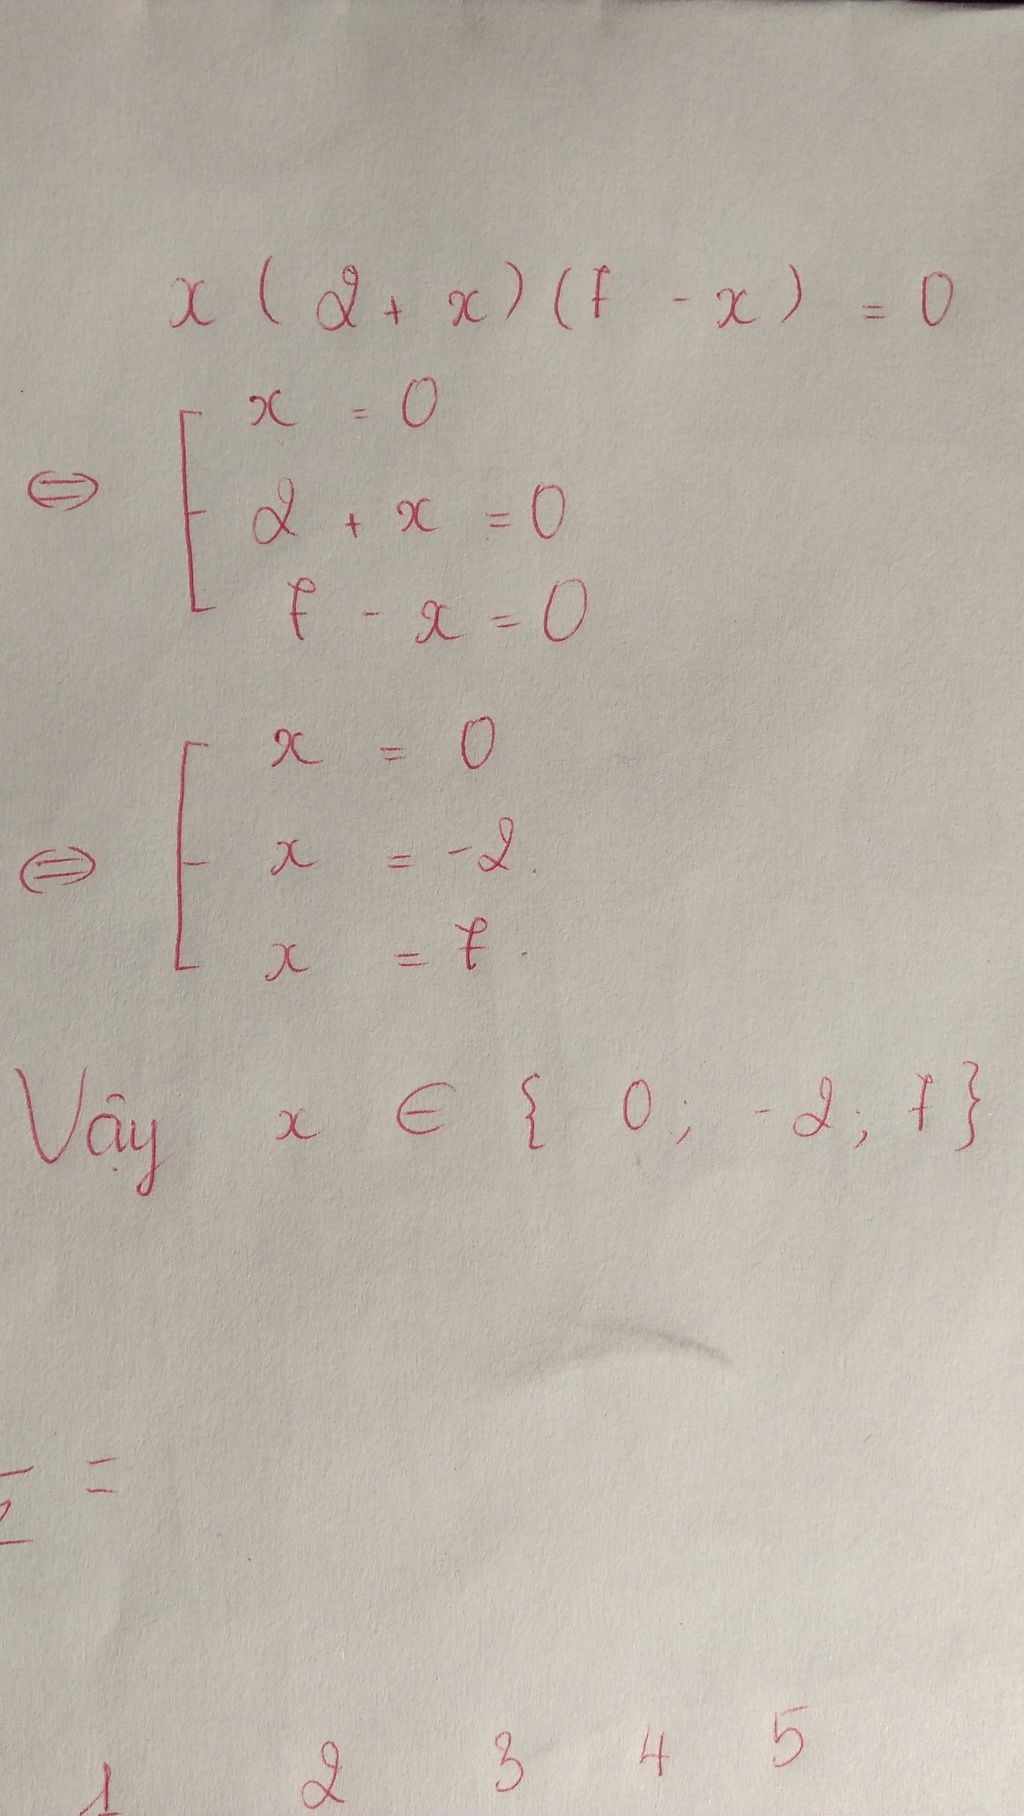 x (2 + x)(7 - x) = 0
⇔ [ x = 0
2 + x = 0
7 - x = 0
⇔ [ x = 0
x = -2.
x = 7.
Vậy x ∈ { 0; -2; 7}
=
1 2 3 4 5